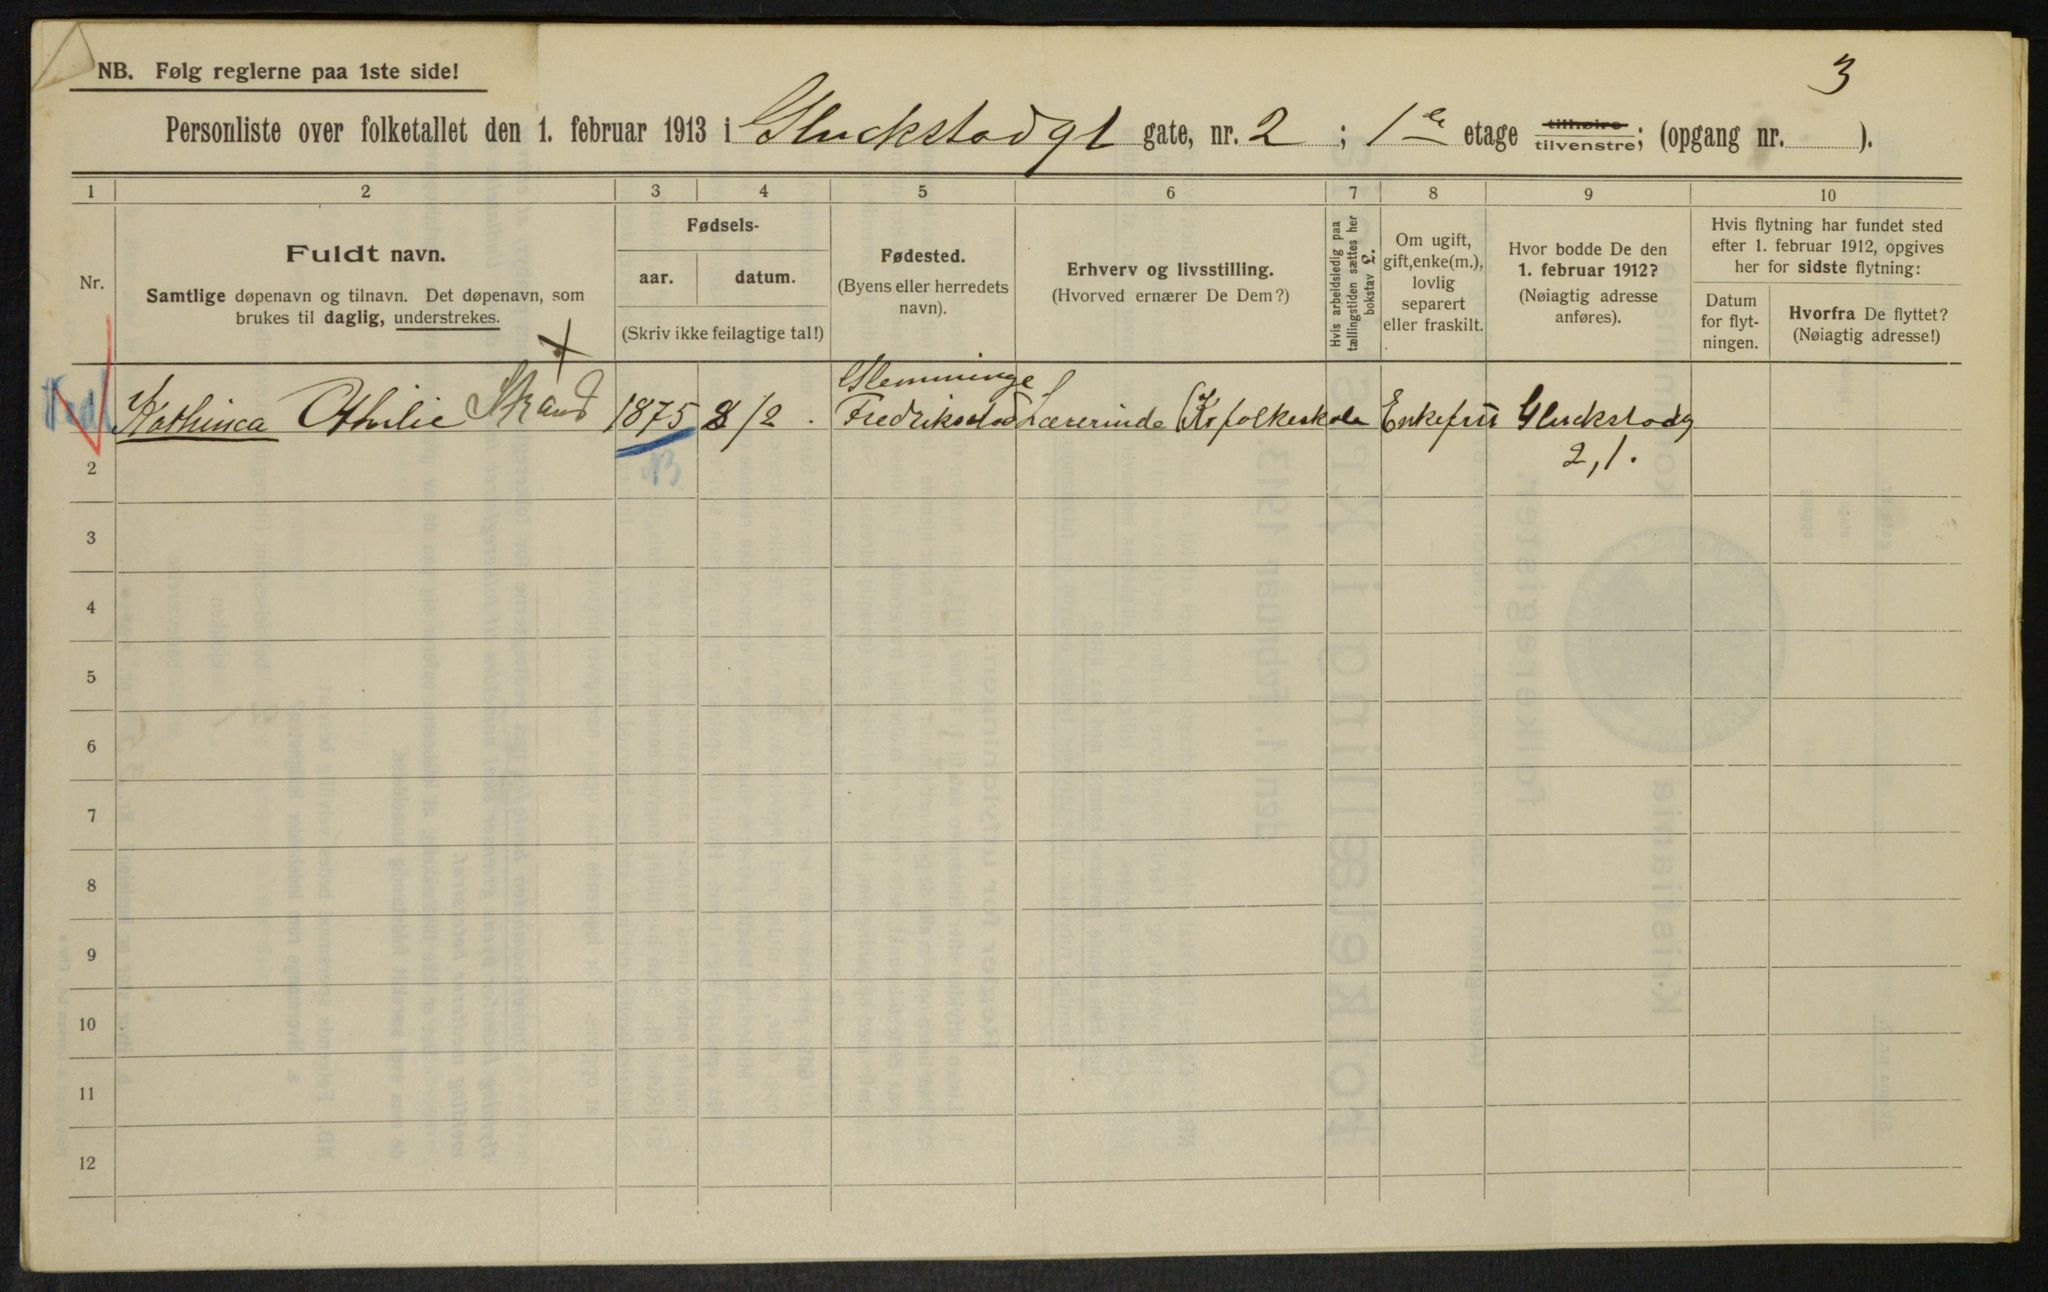 3
NB. Følg reglerne paa 1ste side!
Personliste over folketallet den 1. februar 1913 i Gluckstadgt gate, nr. 2 ; 1ste etage tilhøire tilvenstre; (opgang nr. ).
1 2 3 4 5 6 7 8 9 10
Nr.
Fuldt navn.
Samtlige døpenavn og tilnavn. Det døpenavn, som
brukes til daglig, understrekes.
Fødsels-
aar. datum.
(Skriv ikke feilagtige tal!)
Fødested.
(Byens eller herredets
navn).
Erhverv og livsstilling.
(Hvorved ernærer De Dem?)
Hvis arbeidsledig paa
tællingstiden sættes her
bokstav L.
Om ugift,
gift, enke(m.),
lovlig
separert
eller fraskilt.
Hvor bodde De den
1. februar 1912?
(Nøiagtig adresse
anføres).
Hvis flytning har fundet sted
efter 1. februar 1912, opgives
her for sidste flytning:
Datum
for flyt-
ningen.
Hvorfra De flyttet?
(Nøiagtig adresse!)
Glemminge
Kathinca Othilie Strand 1875 8/2 . Fredriksstad Lærerinde Kr folkeskole Enkefru Gluckstadg
2, 1.
2
3
4
5
6
7
8
9
10
11
12